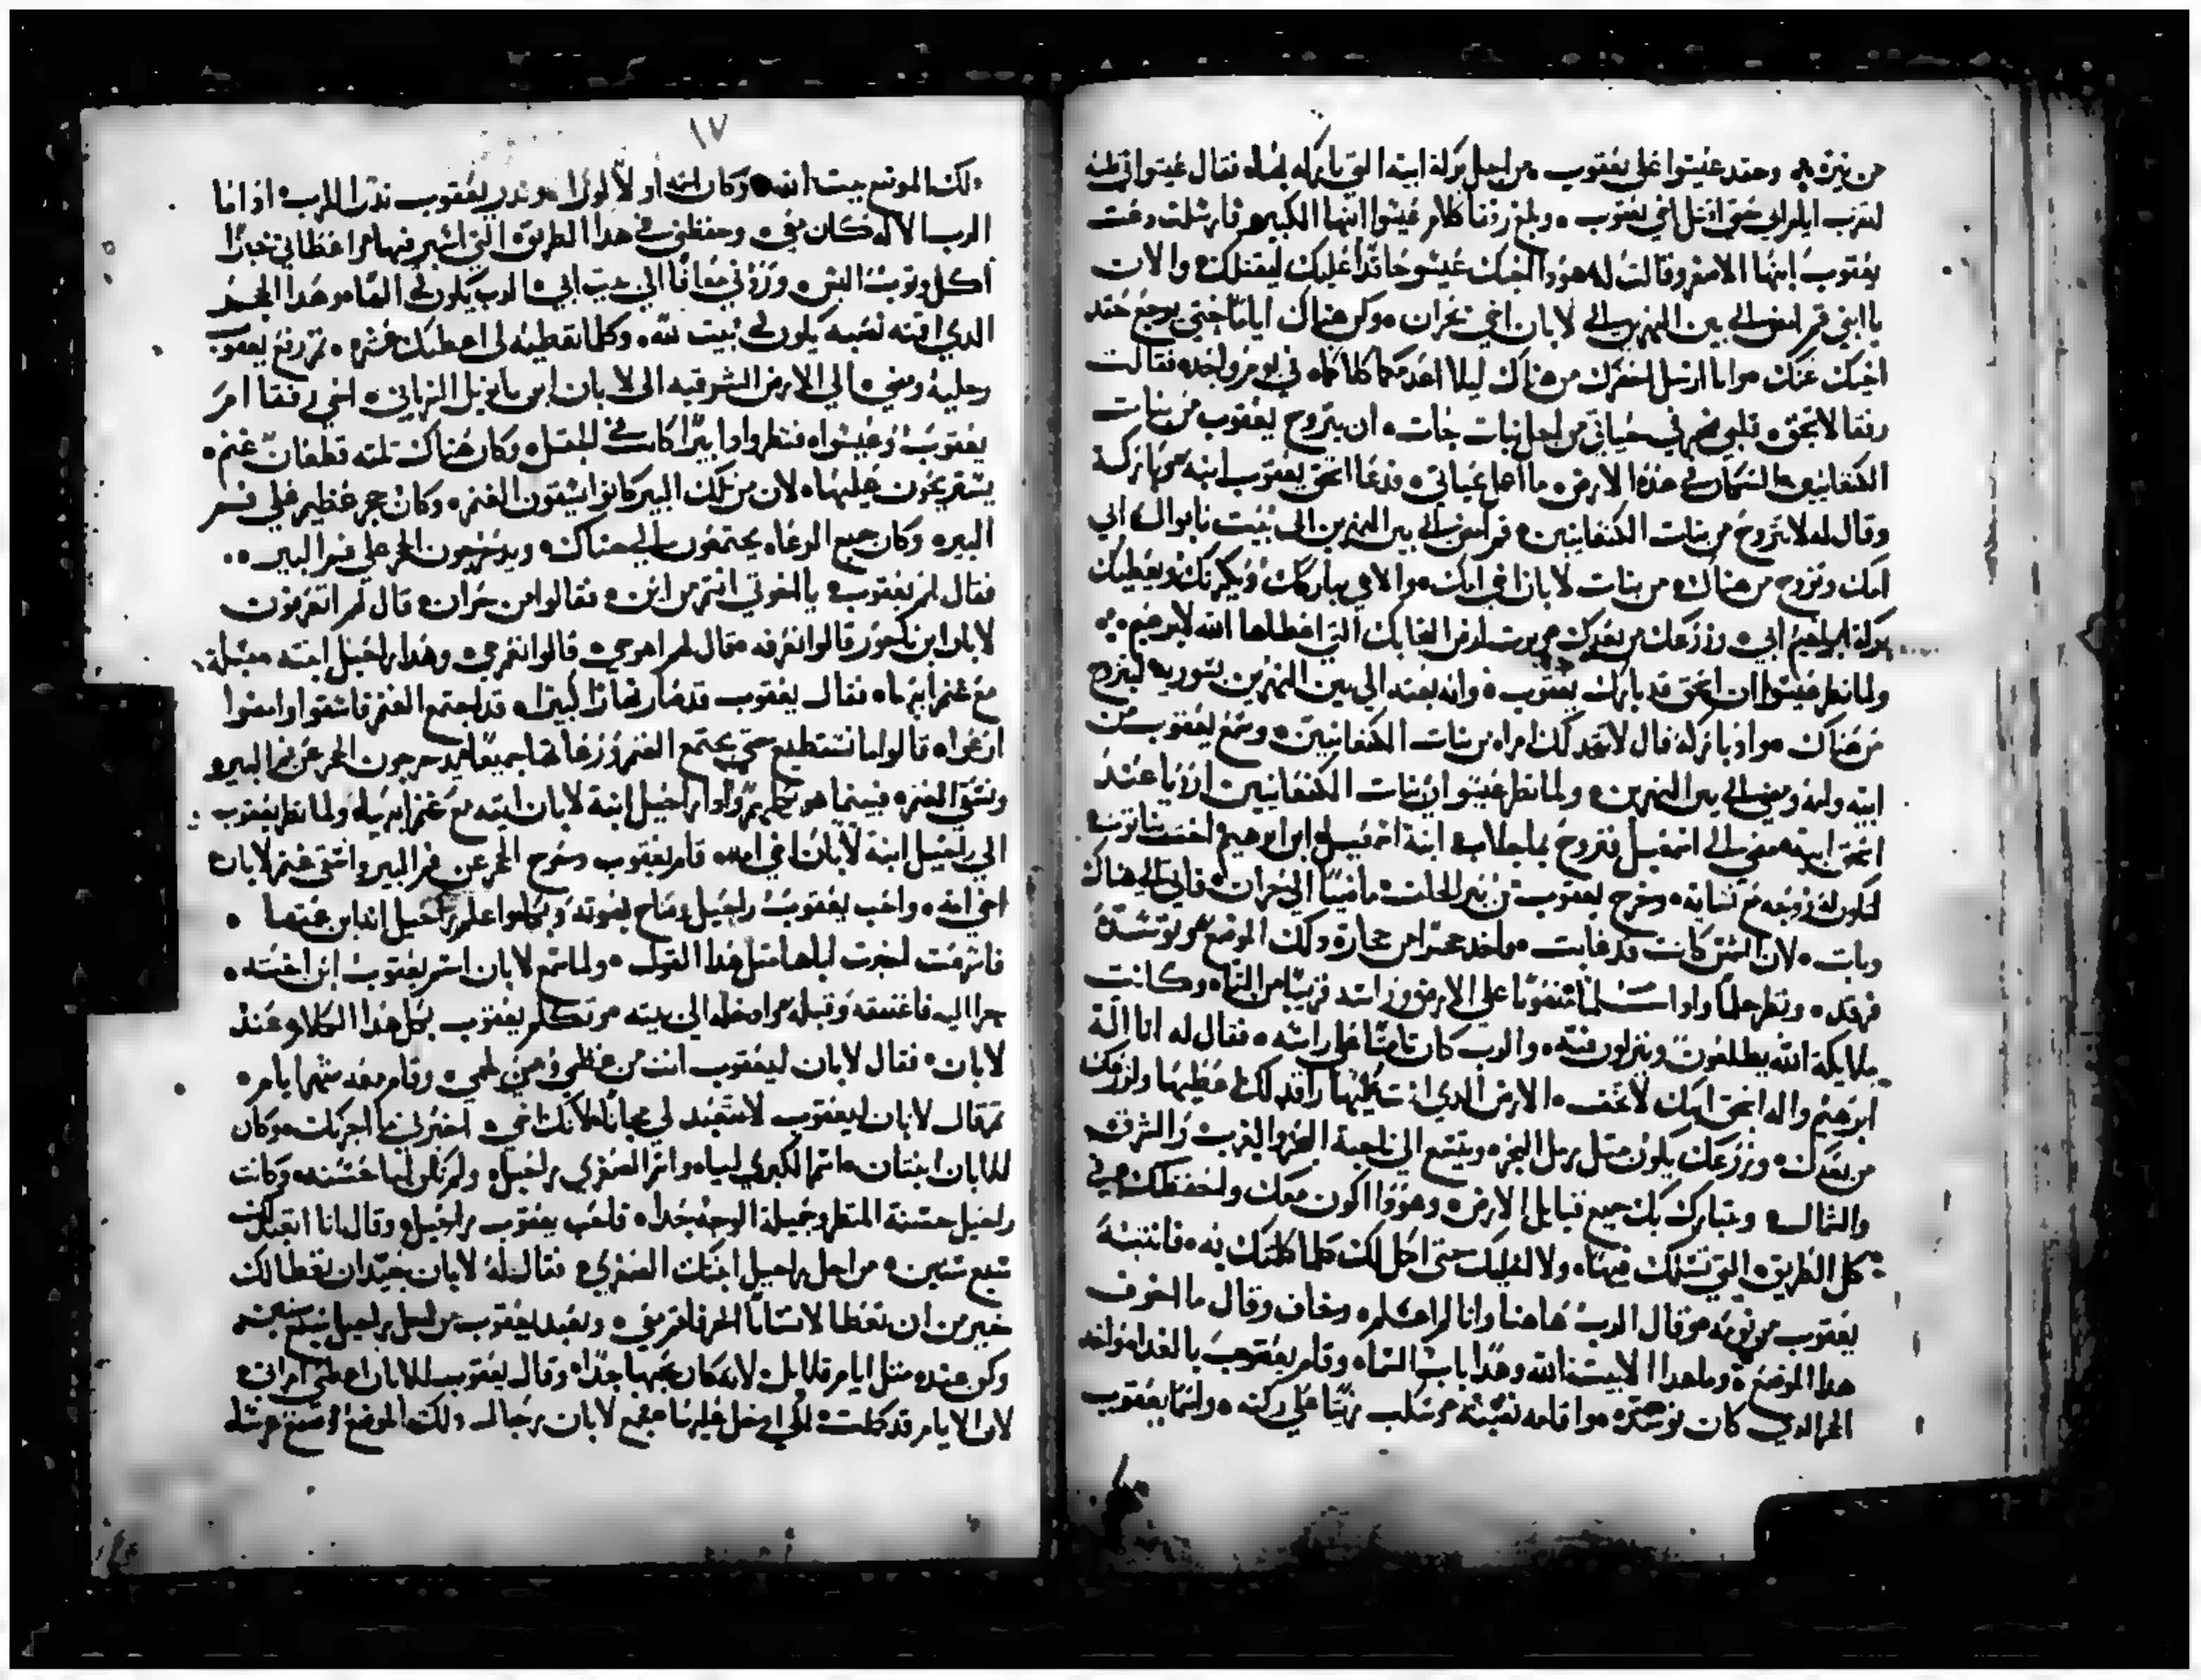 من نيره وحقد عيسوا على يعقوب من اجل بركة ابيه التي باركه بها فقال عيسوا في قلبه
لتقرب ايام ابي حتى اقتل اخي يعقوب وبلغ رفقا كلام عيسوا ابنها الكبير فارسلت ودعت
يعقوب ابنها الاصغر وقالت له هودا اخيك عيسو حاقدا عليك ليقتلك والان
يا ابني قم امض الى بين النهرين الى لابان اخي بحران وكن هناك اياما حتى يرجع حقد
اخيك عنك وانا ارسل احضرك من هناك ليلا اعدمكما كلاكما في يوم واحد فقالت
رفقا لاسحق قلبي ضجر في حياتي من اجل بنات حات ان يتزوج يعقوب من بنات
الكنعانيين السكان في هذه الارض ما اصنع بحياتي فدعا اسحق يعقوب ابنه وباركه
وقال له لا تتزوج من بنات الكنعانيين قم امض الى بين النهرين الى بيت باتوال ابي
امك وتزوج من هناك من بنات لابان اخي امك والاهي يباركك ويكثرك ويعطيك
بركة ابراهيم ابي وزرعك من بعدك ويرث ارض التي اعطاها الله لابرهيم
ولما نظر عيسوا ان اسحق قد بارك يعقوب وانه بعثه الى بين النهرين بسورية ليتزوج
من هناك واذ باركه قال لا تتخذ لك امراه من بنات الكنعانيين وسمع يعقوب من
ابيه وامه ومضى الى بين النهرين ولما نظر عيسوا ان بنات الكنعانيين ارديا عند
اسحق ابيه مضى الى اسمعيل فتزوج بماحلاث ابنة اسمعيل ابن ابرهيم اخت
لتكون له زوجه مع نسايه وخرج يعقوب من بير الحلف ماضيا الى حران فاتى الى هناك
وبات لان الشمس كانت قد غابت واخذ حجرا من حجارة ذلك الموضع وتوسده
فرقد ونظر حلما واذا سلما منصوبا على الارض وراسه قريبا من السما وكانت
ملايكة الله يطلعون وينزلون منه والرب كان تابتا على راسه فقال له انا اله
ابرهيم واله اسحق ابيك لا تخف الارض الذي انت عليها راقد لك اعطيها ولزرعك
من بعدك وزرعك يكون متل رمل البحر ويتسع الى ناحية البحر والغرب والشرق
والشمال ويتبارك بك جميع قبايل الارض وهودا اكون معك واحفظك في
كل الطريق التي تسلك فيها ولا اخليك حتى اكمل لك كلما كلمتك به فانتبه
يعقوب من نومه وقال الرب هاهنا وانا لم اعلم وخاف وقال ما اخوف
هدا الموضع وما هدا الا بيت الله وهدا باب السما وقام يعقوب بالغداه واخد
الحجر الدي كان توسده واقامه نصبه وسكب زيتا على ركنه واسما يعقوب
١٧
دلك الموضع بيت الله وكان اسمه اولا لوزا ونذر يعقوب ندرا للرب اذا ما
الرب الاله كان معي وحفظني في هدا الطريق التي اسير فيها واعطاني خبزا
اكل وتوب البس وردني معافا الى بيت ابي الرب يكون لي الها وهدا الحجر
الدي اقمته نصبه يكون لي بيت لله وكلما تعطيه لي اعطيك عشره ثم رفع يعقوب
رجليه ومضى الى الارض الشرقيه الى لابان ابن باتويل السرياني اخي رفقا ام
يعقوب وعيسوا فنظر واذا بيرا كانت في الحقل وكان هناك تلته قطعان غنم
يستريحون عليها لان من تلك البير كانوا يسقون الغنم وكان حجر عظيم على فم
البير وكان جميع الرعاه يجتمعون الى هناك ويدحرجون الحجر على فم البير
فقال لهم يعقوب يا اخوتي انتم من اين فقالوا من حران قال لهم اتعرفون
لابان ابن ناحور قالوا نعرفه فقال لهم احي هو قالوا نعم حي وهدا راحيل ابنته مقبلة
مع غنم ابيها فقال يعقوب قد صار نهارا كبيرا قد اجتمع الغنم فاسقوا وامضوا
ارعوا قالوا ما نستطيع حتى يجتمع الغنم ورعاتها جميعا يدحرجون الحجر عن فم البير
ونسقي الغنم فبينما هو يكلمهم واذا راحيل ابنة لابان اتيه مع غنم ابيها ولما نظر يعقوب
الى راحيل ابنة لابان اخي امه قام يعقوب ودحرج الحجر عن فم البير واسقى غنم لابان
اخي امه واحب يعقوب راحيل وصاح بصوته وبكا واعلم راحيل انه ابن عمتها
فاسرعت اخبرت اباها متل هدا القول ولما سمع لابان اسم يعقوب ابن اخته
جرا اليه فاعتنقه وقبله وادخله الى بيته وتكلم يعقوب بكل هدا الكلام عند
لابان فقال لابان ليعقوب انت من عظمي ومن لحمي وقام معه شهر ايام
تم قال لابان ليعقوب لا تستعبد لي مجانا لانك اخي اخبرني ما اجرتك وكان
للابان ابنتان اسم الكبرى ليا واسم الصغرى راحيل ولم تكن ليا حسنه وكانت
راحيل حسنة المنظر وجميلة الوجه جدا فاحب يعقوب راحيل وقال انا اتعبد لك
سبع سنين من اجل راحيل ابنتك الصغرى فقال له لابان جيد ان تعطا لك
خير من ان تعطا لانسانا اخر فاقم معي وتعبد يعقوب من اجل راحيل سبع سنين
وكن عنده متل ايام قلايل لانه كان يحبها جدا وقال يعقوب للابان اعطيني امراتي
لان الايام قد كملت لكي ادخل عليها فجمع لابان رجال دلك الموضع وصنع عرسا